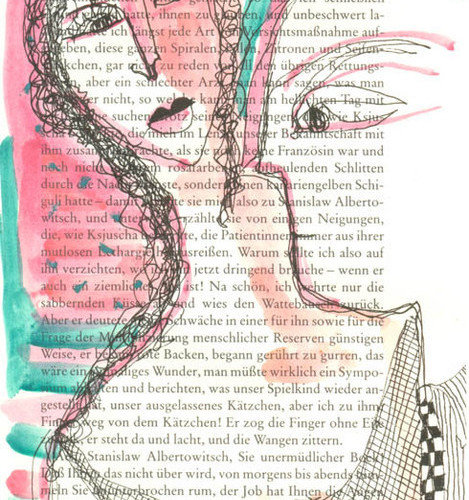 hatte, ihnen zu und unbeschwert la-
ich längst jede Art von Vorsichtsmaßnahme auf-
geben, diese ganzen Spiralen, Pillen, Zitronen und Seifen-
gar nicht zu reden von all den übrigen Rettungs-
aber ein schlechter Arzt, kann sagen, was man
er nicht, so we kann man am hellichten Tag mit
suchen, trotz seiner Neigungen wie Ksju-
scha die mir im Lenz unserer Bekanntschaft mit
ihm zusah erreichte, als sie noch keine Französin war und
noch nicht in einem rosafarbenen, aufheulenden Schlitten
durch die Nacht, sondern einen kanariengelben Schi-
guli hatte – damals sie mich also zu Stanislaw Alberto-
witsch, und erzählte sie von einigen Neigungen,
die, wie Ksjuscha, die Patientinnen immer aus ihrer
mutlosen Lethargie reißen. Warum sollte ich also auf
ihn verzichten, wo ich ihn jetzt dringend brauche – wenn er
auch ein ziemliches ist! Na schön, ich wehrte nur die
sabbernden Küsse ab und wies den Wattebausch zurück.
Aber er deutete Schwäche in einer für ihn sowie für die
Frage der menschlicher Reserven günstigen
Weise, er bekam rote Backen, begann gerührt zu gurren, das
wäre ein einmaliges Wunder, man müßte wirklich ein Sympo-
sium abhalten und berichten, was unser Spielkind wieder an-
gestellt hat, unser ausgelassenes Kätzchen, aber ich zu ihm:
Finger weg von dem Kätzchen! Er zog die Finger ohne Eile
zurück, er steht da und lacht, und die Wangen zittern.
Stanislaw Albertowitsch, Sie unermüdlicher Bock!
Daß Ihnen das nicht über wird, von morgens bis abends
meln Sie ununterbrochen rum, der Job hat Ihnen die Augen